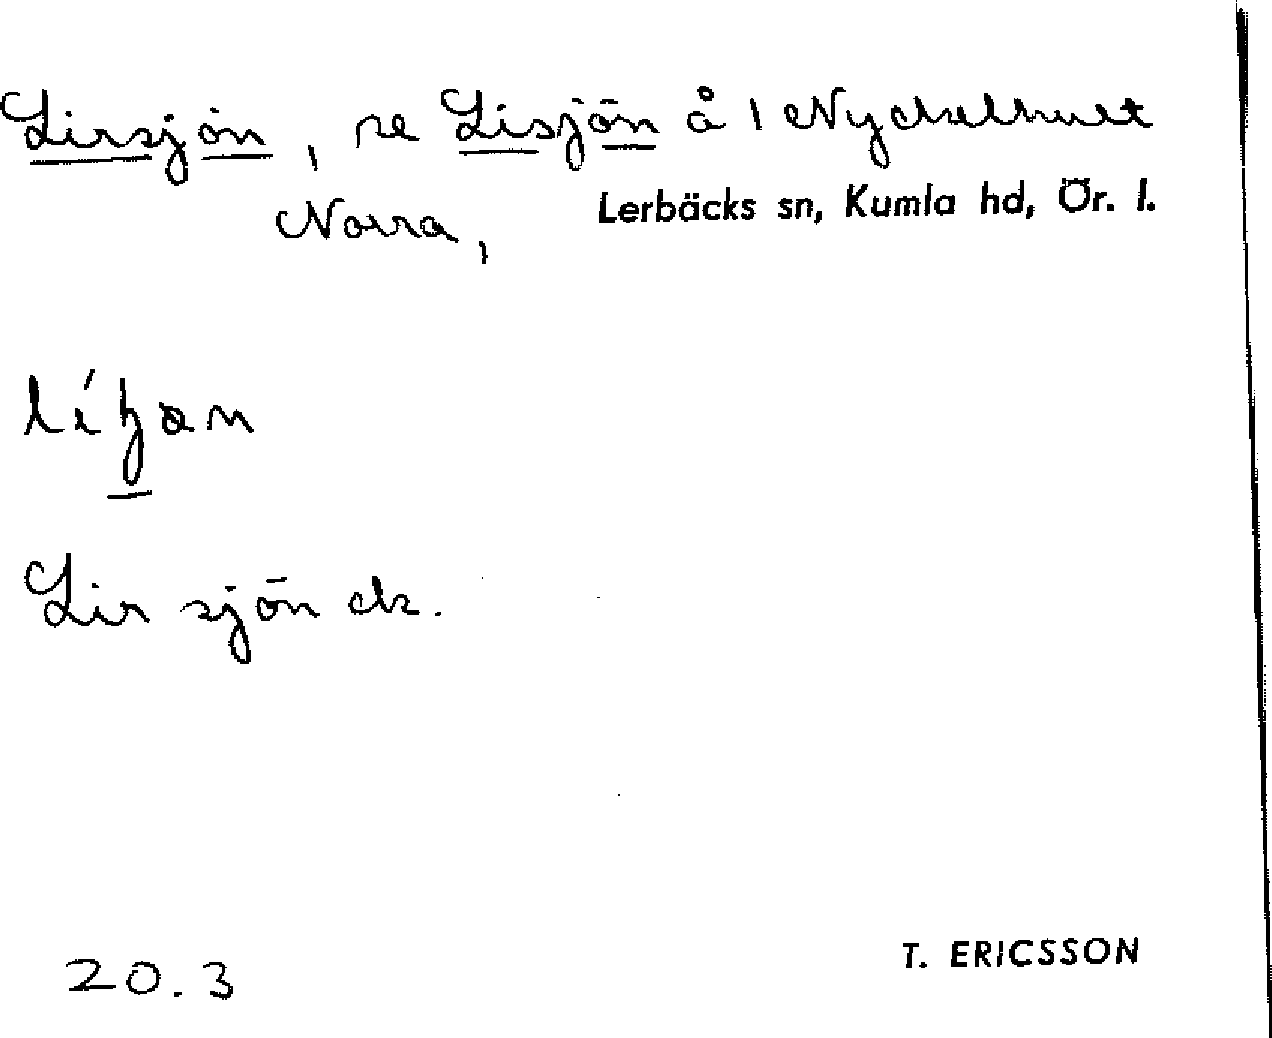 Lirsjön, se Lisjön å 1 Nyckelhult
Norra,
Lerbäcks sn, Kumla hd, Ör. l.
Lirsjön ek.
20.3
T. ERICSSON